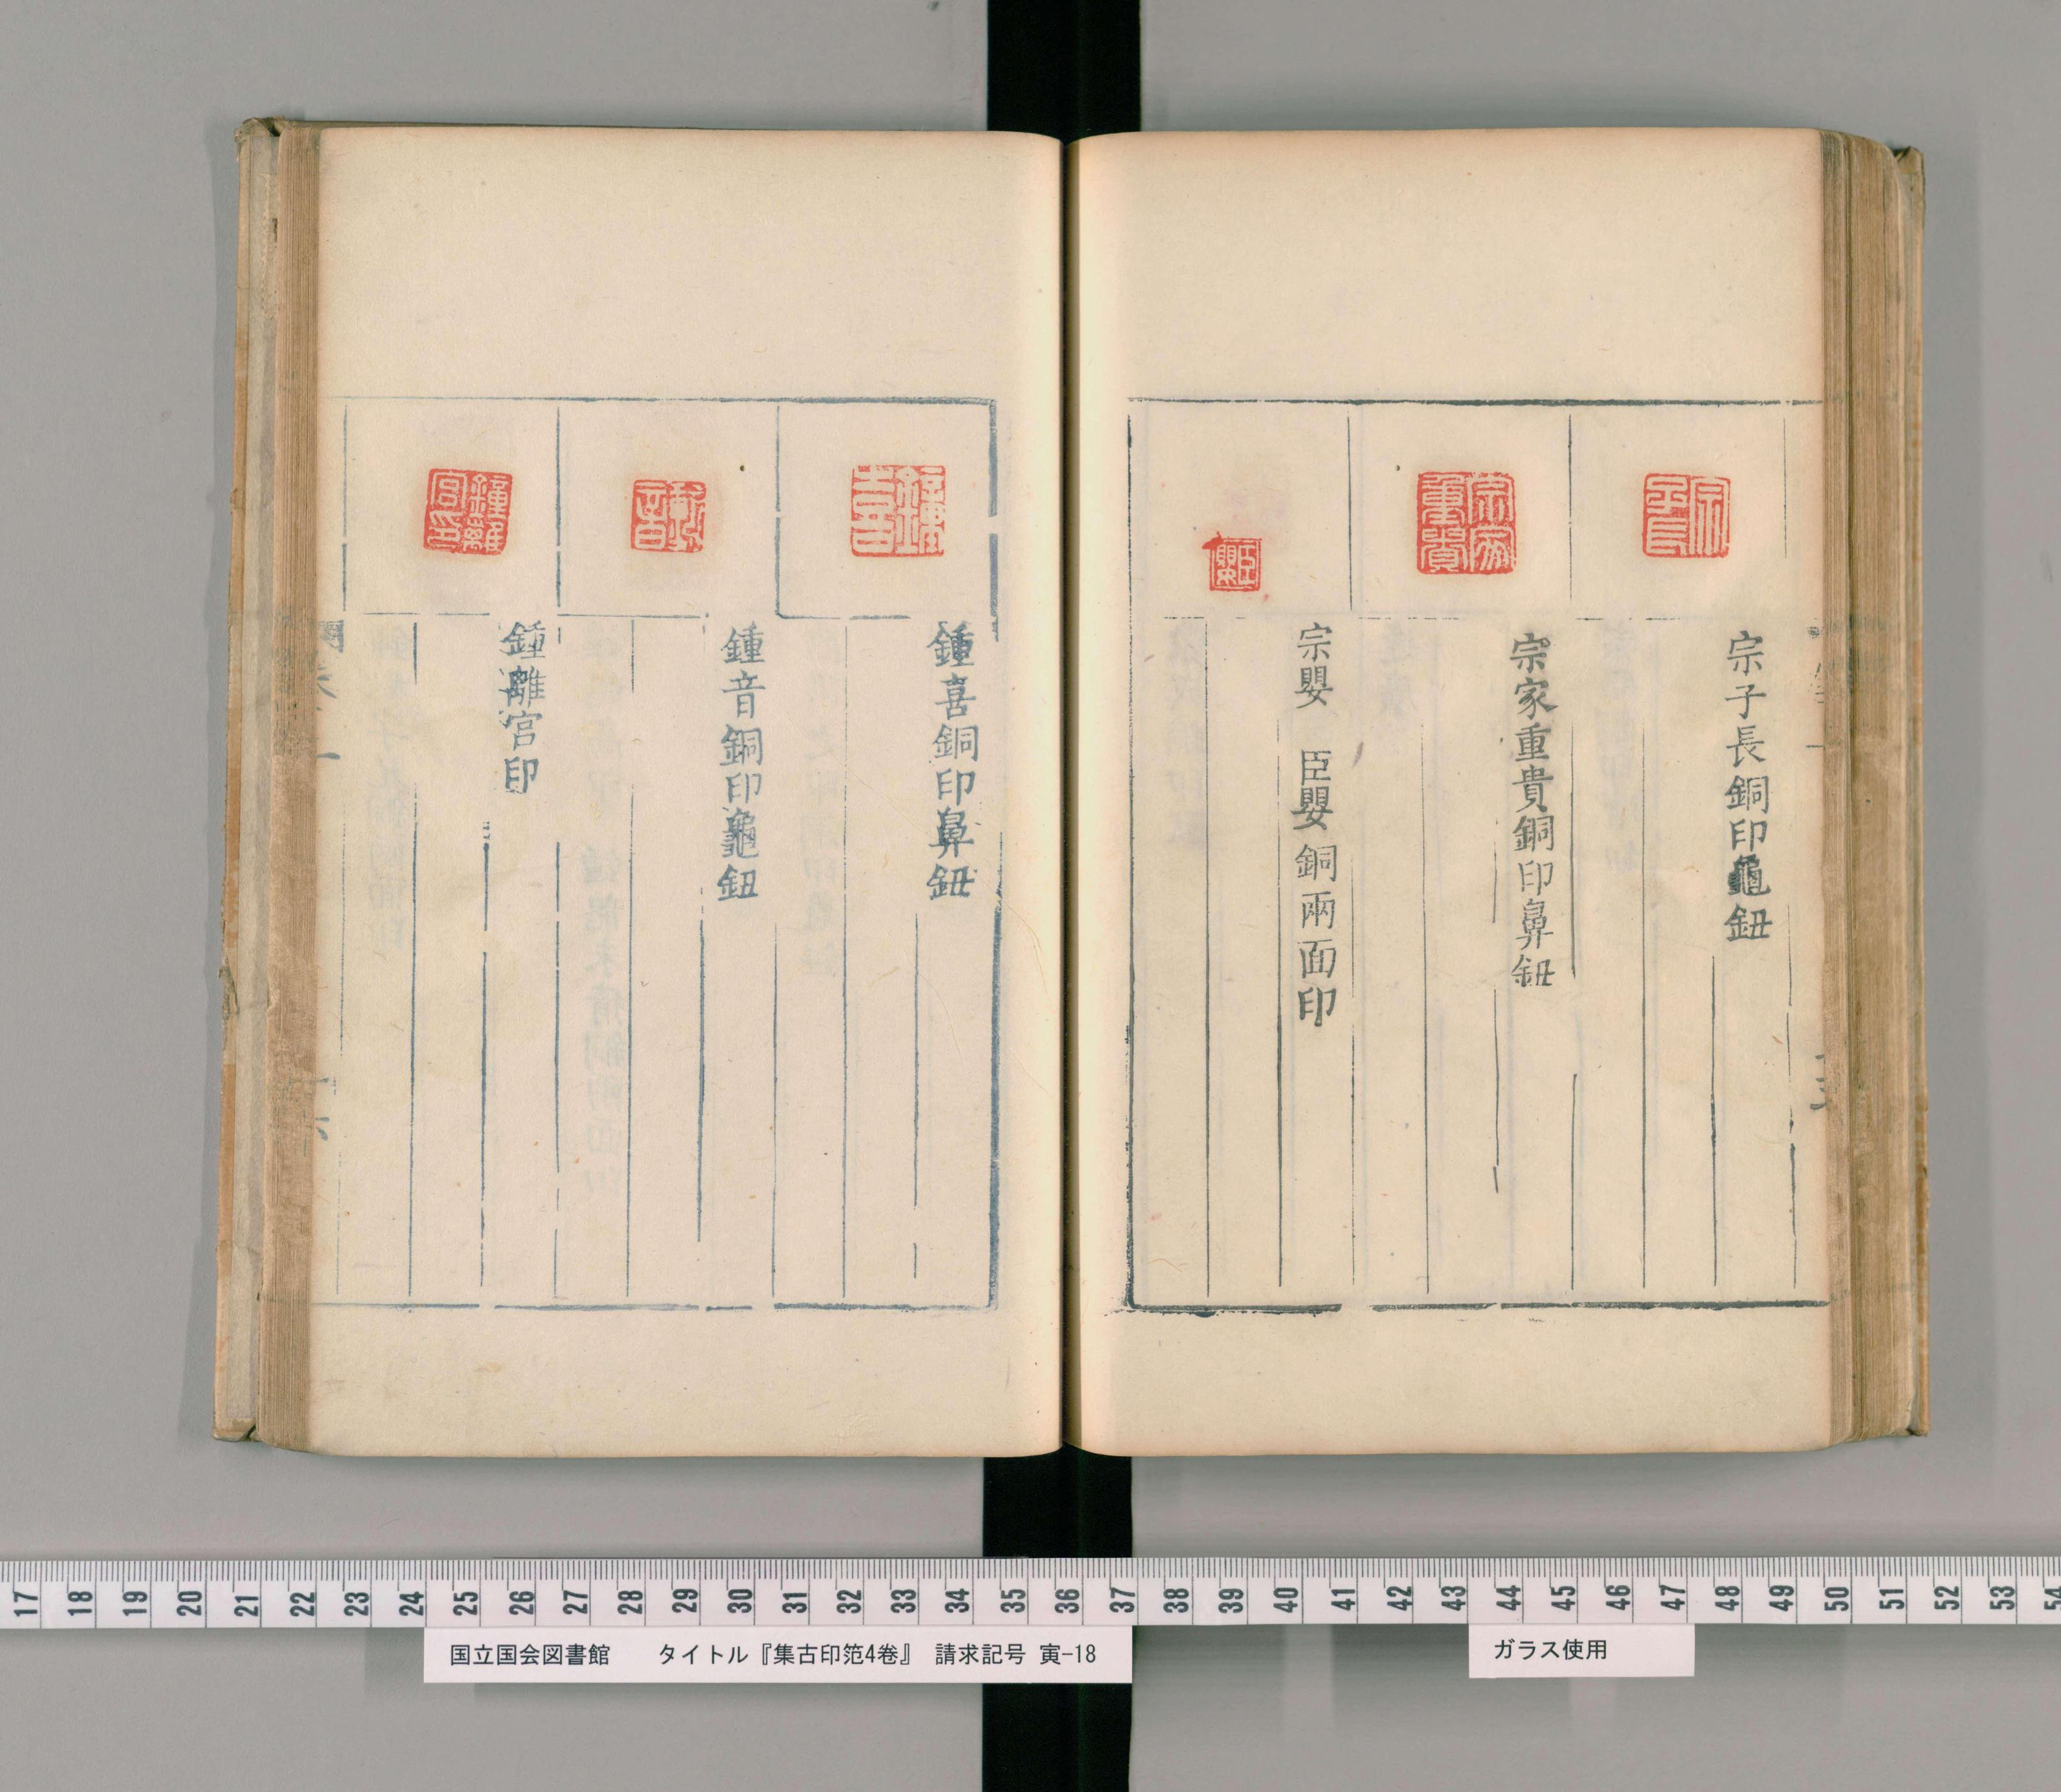 宗子長
宗子長銅印龜鈕
宗家重貴
宗家重貴銅印鼻鈕
臣嬰
宗嬰　臣嬰銅兩面印
鍾喜
鍾喜銅印鼻鈕
鍾音銅印龜鈕
鍾離宮印
鍾離宮印
17 18 19 20 21 22 23 24 25 26 27 28 29 30 31 32 33 34 35 36 37 38 39 40 41 42 43 44 45 46 47 48 49 50 51 52 53 54
国立国会図書館　タイトル『集古印笵4巻』 請求記号 寅-18
ガラス使用